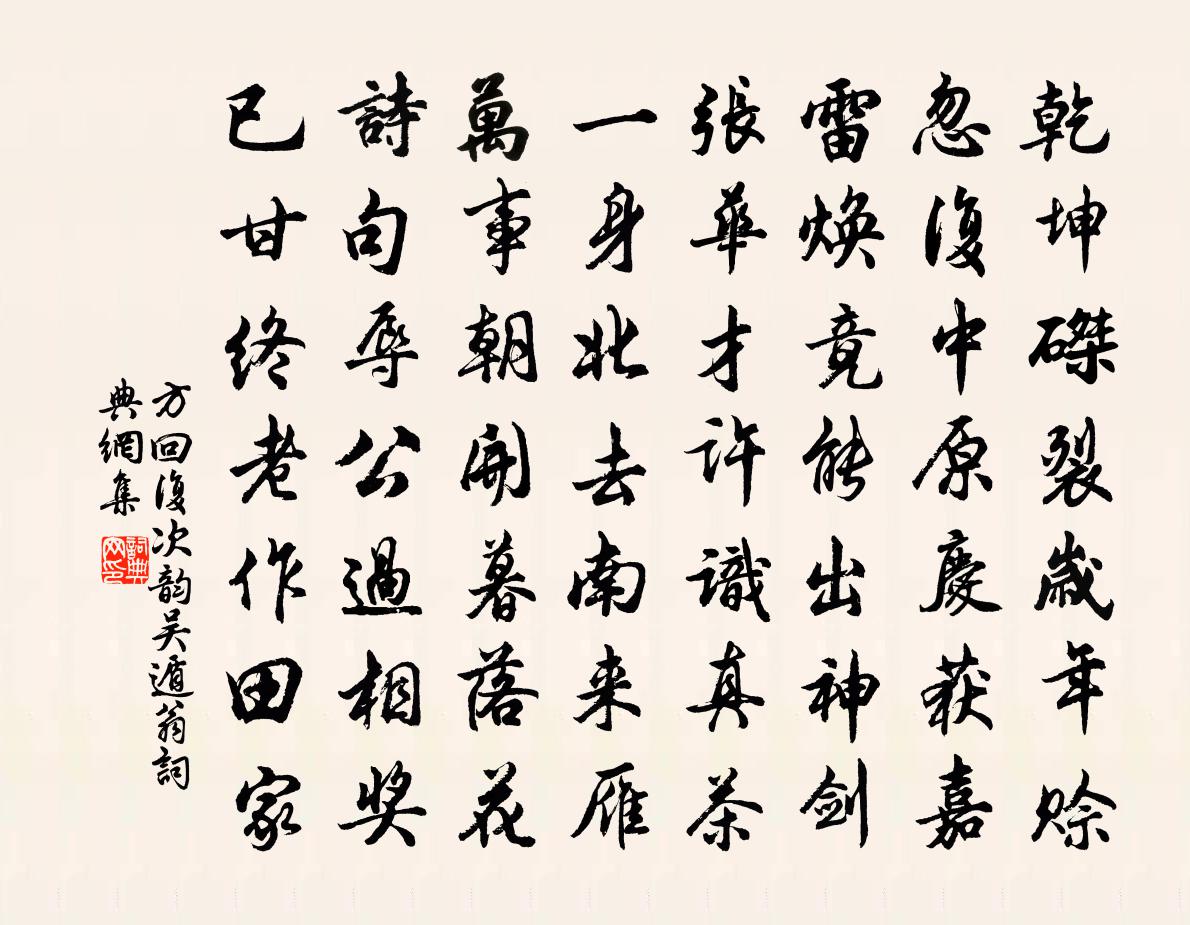 乾坤磔裂歲年賒
忽復中原慶获嘉
雷煥竟能出神劍
張華才許識真茶
一身北去南来雁
萬事朝開暮落花
詩句辱公過相奖
已甘终老作田家
方回復次韵吴遁翁詞
典網集
詞典
网印